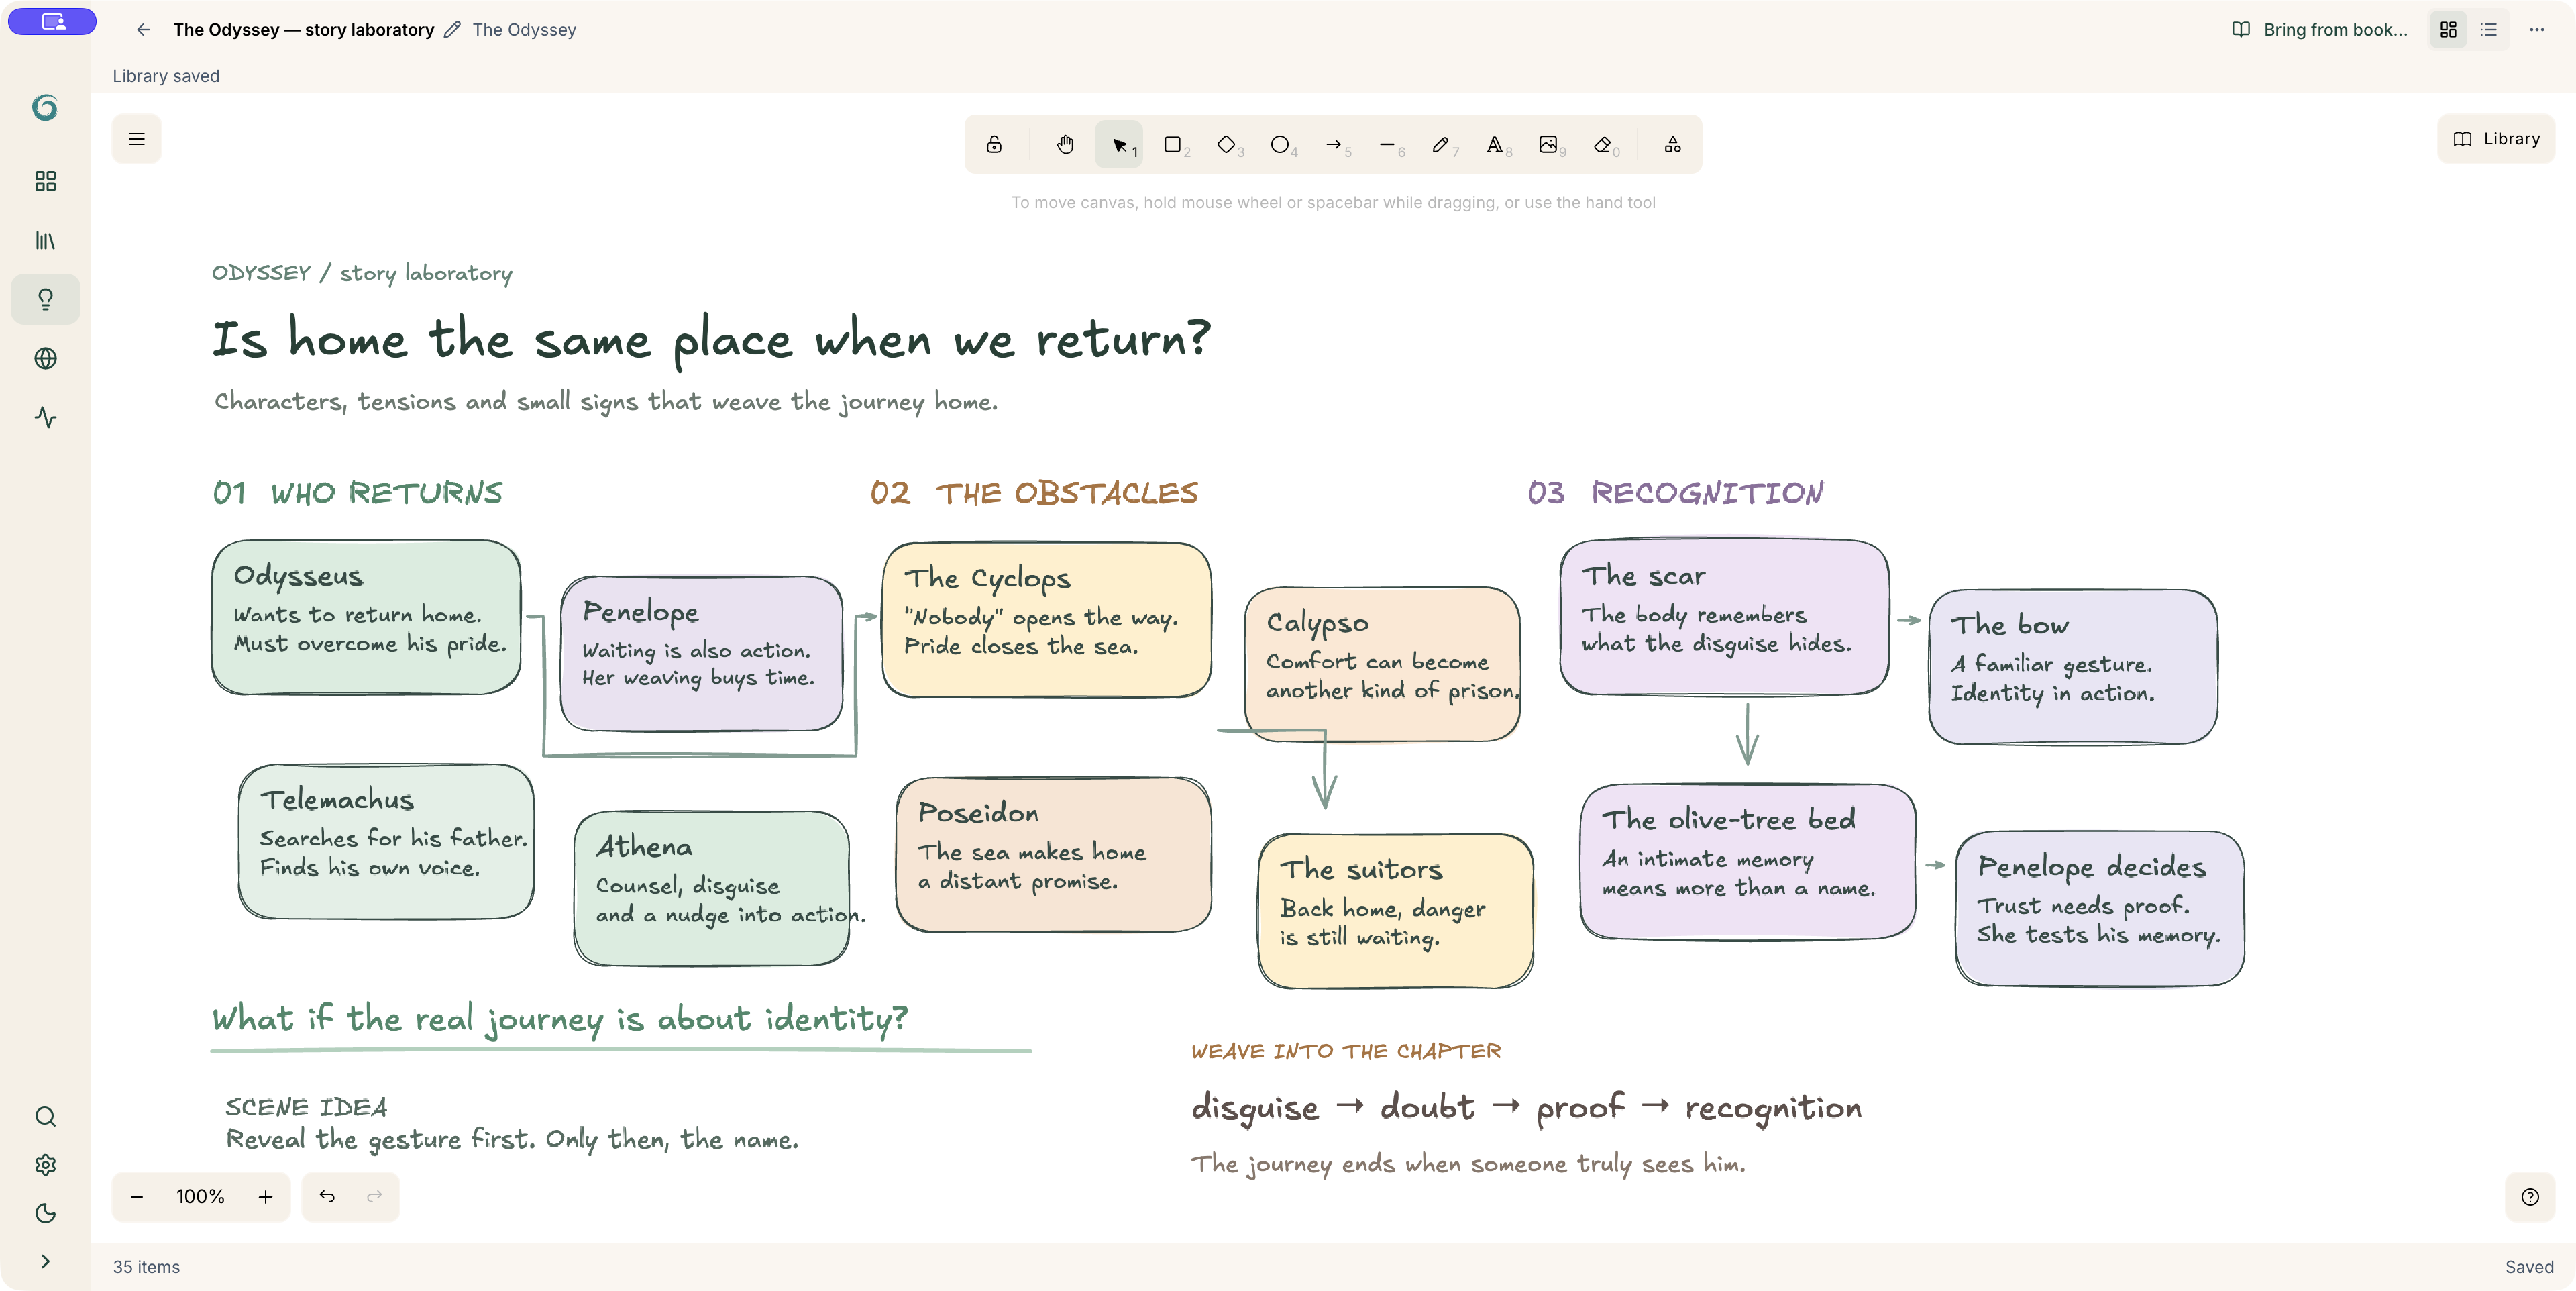 The Odyssey — story laboratory
The Odyssey
Bring from book...
Library saved
1
2
3
4
5
6
7
8
9
0
Library
To move canvas, hold mouse wheel or spacebar while dragging, or use the hand tool
ODYSSEY / story laboratory
Is home the same place when we return?
Characters, tensions and small signs that weave the journey home.
01 WHO RETURNS
Odysseus
Wants to return home.
Must overcome his pride.
Penelope
Waiting is also action.
Her weaving buys time.
Telemachus
Searches for his father.
Finds his own voice.
Athena
Counsel, disguise
and a nudge into action.
02 THE OBSTACLES
The Cyclops
"Nobody" opens the way.
Pride closes the sea.
Calypso
Comfort can become
another kind of prison.
Poseidon
The sea makes home
a distant promise.
The suitors
Back home, danger
is still waiting.
03 RECOGNITION
The scar
The body remembers
what the disguise hides.
The bow
A familiar gesture.
Identity in action.
The olive-tree bed
An intimate memory
means more than a name.
Penelope decides
Trust needs proof.
She tests his memory.
What if the real journey is about identity?
SCENE IDEA
Reveal the gesture first. Only then, the name.
WEAVE INTO THE CHAPTER
disguise → doubt → proof → recognition
The journey ends when someone truly sees him.
100%
35 items
Saved